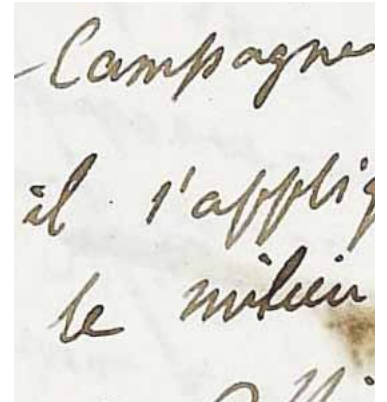 Campagne
il s'appliq
le milieu